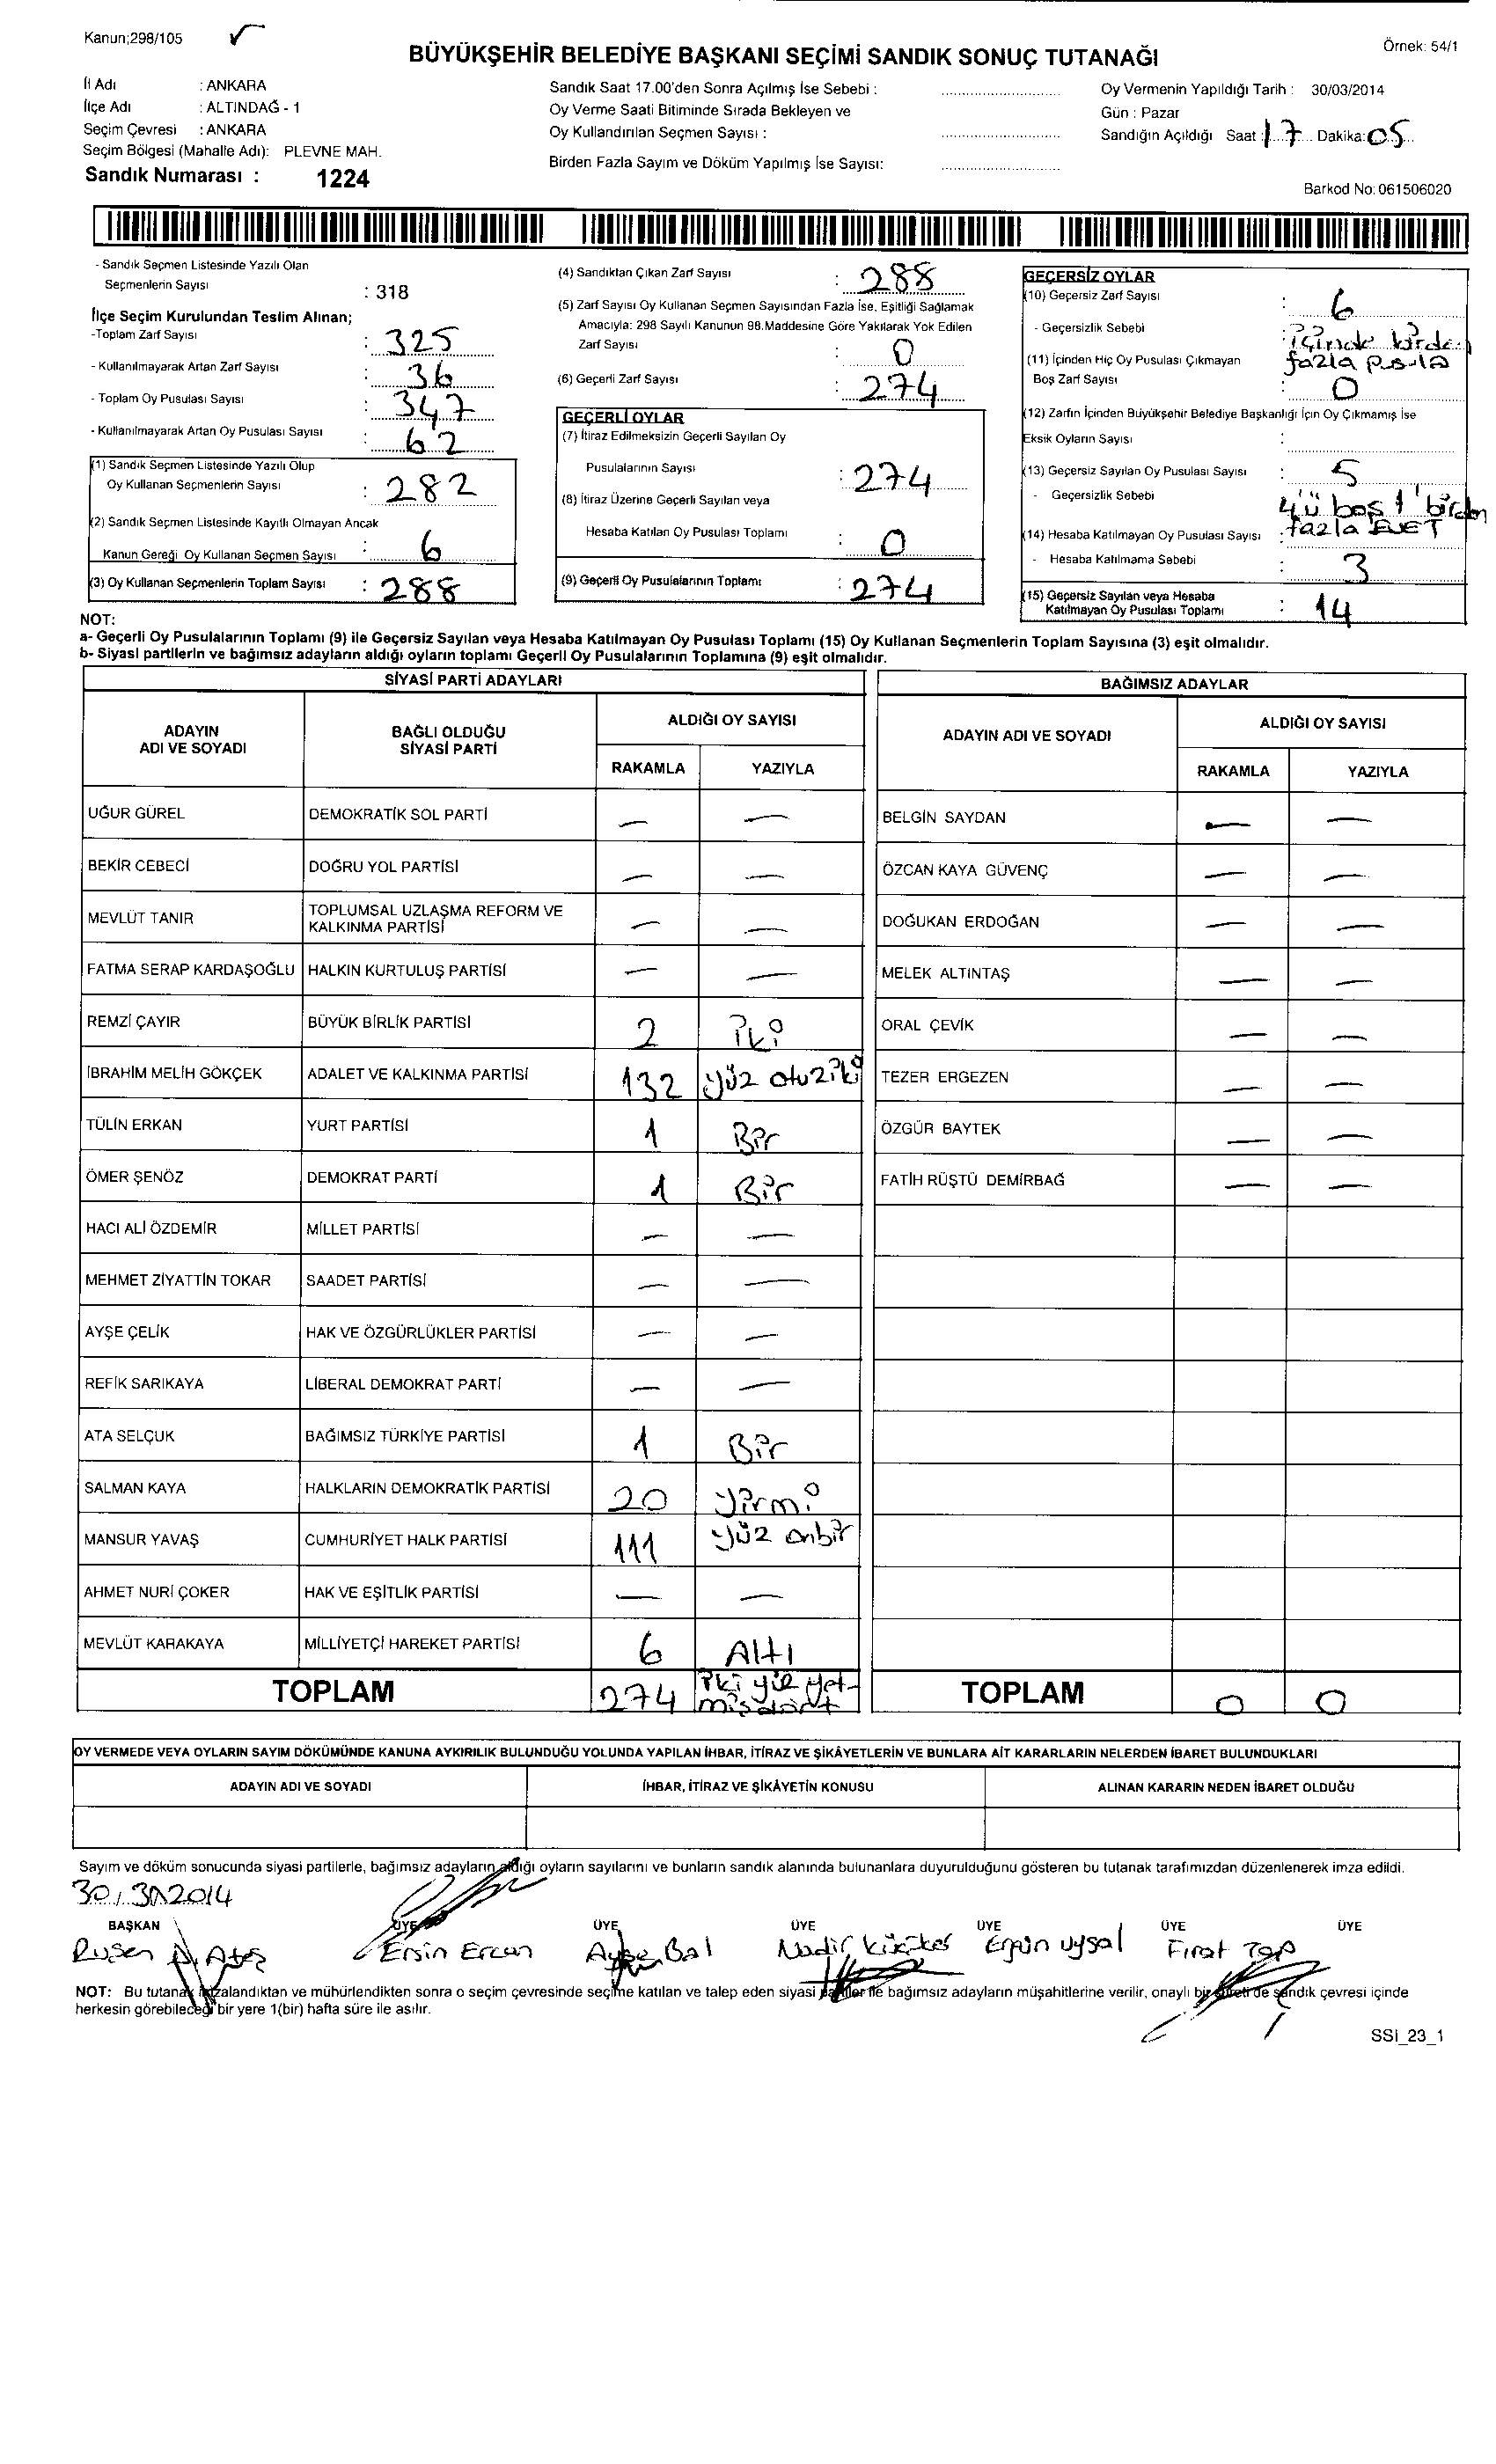 Kanun;298/105
Örnek: 54/1
BÜYÜKŞEHİR BELEDİYE BAŞKANI SEÇİMİ SANDIK SONUÇ TUTANAĞI
İl Adı : ANKARA
İlçe Adı : ALTINDAĞ - 1
Seçim Çevresi : ANKARA
Seçim Bölgesi (Mahalle Adı): PLEVNE MAH.
Sandık Numarası : 1224
Sandık Saat 17.00'den Sonra Açılmış İse Sebebi :
Oy Verme Saati Bitiminde Sırada Bekleyen ve
Oy Kullandırılan Seçmen Sayısı :
Birden Fazla Sayım ve Döküm Yapılmış İse Sayısı:
Oy Vermenin Yapıldığı Tarih : 30/03/2014
Gün : Pazar
Sandığın Açıldığı Saat : 17 Dakika: 05
Barkod No: 061506020
- Sandık Seçmen Listesinde Yazılı Olan
Seçmenlerin Sayısı : 318
İlçe Seçim Kurulundan Teslim Alınan;
-Toplam Zarf Sayısı : 325
- Kullanılmayarak Artan Zarf Sayısı : 36
- Toplam Oy Pusulası Sayısı : 347
- Kullanılmayarak Artan Oy Pusulası Sayısı : 62
(1) Sandık Seçmen Listesinde Yazılı Olup
Oy Kullanan Seçmenlerin Sayısı : 282
(2) Sandık Seçmen Listesinde Kayıtlı Olmayan Ancak
Kanun Gereği Oy Kullanan Seçmen Sayısı : 6
(3) Oy Kullanan Seçmenlerin Toplam Sayısı : 288
(4) Sandıktan Çıkan Zarf Sayısı : 288
(5) Zarf Sayısı Oy Kullanan Seçmen Sayısından Fazla İse, Eşitliği Sağlamak
Amacıyla: 298 Sayılı Kanunun 98.Maddesine Göre Yakılarak Yok Edilen
Zarf Sayısı : 0
(6) Geçerli Zarf Sayısı : 274
GEÇERLİ OYLAR
(7) İtiraz Edilmeksizin Geçerli Sayılan Oy
Pusulalarının Sayısı : 274
(8) İtiraz Üzerine Geçerli Sayılan veya
Hesaba Katılan Oy Pusulası Toplamı : 0
(9) Geçerli Oy Pusulalarının Toplamı : 274
GEÇERSİZ OYLAR
(10) Geçersiz Zarf Sayısı : 6
- Geçersizlik Sebebi : içinde birden
fazla pusula
(11) İçinden Hiç Oy Pusulası Çıkmayan
Boş Zarf Sayısı : 0
(12) Zarfın İçinden Büyükşehir Belediye Başkanlığı İçin Oy Çıkmamış İse
Eksik Oyların Sayısı :
(13) Geçersiz Sayılan Oy Pusulası Sayısı : 5
- Geçersizlik Sebebi 4'ü boş 1'birden
fazla EVET
(14) Hesaba Katılmayan Oy Pusulası Sayısı :
- Hesaba Katılmama Sebebi : 3
(15) Geçersiz Sayılan veya Hesaba
Katılmayan Oy Pusulası Toplamı : 14
NOT:
a- Geçerli Oy Pusulalarının Toplamı (9) ile Geçersiz Sayılan veya Hesaba Katılmayan Oy Pusulası Toplamı (15) Oy Kullanan Seçmenlerin Toplam Sayısına (3) eşit olmalıdır.
b- Siyasi partilerin ve bağımsız adayların aldığı oyların toplamı Geçerli Oy Pusulalarının Toplamına (9) eşit olmalıdır.
SİYASİ PARTİ ADAYLARI
ADAYIN ADI VE SOYADI
BAĞLI OLDUĞU SİYASİ PARTİ
ALDIĞI OY SAYISI
RAKAMLA YAZIYLA
UĞUR GÜREL DEMOKRATİK SOL PARTİ — —
BEKİR CEBECİ DOĞRU YOL PARTİSİ — —
MEVLÜT TANIR TOPLUMSAL UZLAŞMA REFORM VE KALKINMA PARTİSİ — —
FATMA SERAP KARDAŞOĞLU HALKIN KURTULUŞ PARTİSİ — —
REMZİ ÇAYIR BÜYÜK BİRLİK PARTİSİ 2 iki
İBRAHİM MELİH GÖKÇEK ADALET VE KALKINMA PARTİSİ 132 yüz otuziki
TÜLİN ERKAN YURT PARTİSİ 1 Bir
ÖMER ŞENÖZ DEMOKRAT PARTİ 1 Bir
HACI ALİ ÖZDEMİR MİLLET PARTİSİ — —
MEHMET ZİYATTİN TOKAR SAADET PARTİSİ — —
AYŞE ÇELİK HAK VE ÖZGÜRLÜKLER PARTİSİ — —
REFİK SARIKAYA LİBERAL DEMOKRAT PARTİ — —
ATA SELÇUK BAĞIMSIZ TÜRKİYE PARTİSİ 1 Bir
SALMAN KAYA HALKLARIN DEMOKRATİK PARTİSİ 20 yirmi
MANSUR YAVAŞ CUMHURİYET HALK PARTİSİ 111 yüz onbir
AHMET NURİ ÇOKER HAK VE EŞİTLİK PARTİSİ — —
MEVLÜT KARAKAYA MİLLİYETÇİ HAREKET PARTİSİ 6 Altı
TOPLAM 274 iki yüz yet-
misdört
BAĞIMSIZ ADAYLAR
ADAYIN ADI VE SOYADI
ALDIĞI OY SAYISI
RAKAMLA YAZIYLA
BELGİN SAYDAN — —
ÖZCAN KAYA GÜVENÇ — —
DOĞUKAN ERDOĞAN — —
MELEK ALTINTAŞ — —
ORAL ÇEVİK — —
TEZER ERGEZEN — —
ÖZGÜR BAYTEK — —
FATİH RÜŞTÜ DEMİRBAĞ — —
TOPLAM 0 0
OY VERMEDE VEYA OYLARIN SAYIM DÖKÜMÜNDE KANUNA AYKIRILIK BULUNDUĞU YOLUNDA YAPILAN İHBAR, İTİRAZ VE ŞİKÂYETLERİN VE BUNLARA AİT KARARLARIN NELERDEN İBARET BULUNDUKLARI
ADAYIN ADI VE SOYADI İHBAR, İTİRAZ VE ŞİKÂYETİN KONUSU ALINAN KARARIN NEDEN İBARET OLDUĞU
Sayım ve döküm sonucunda siyasi partilerle, bağımsız adayların aldığı oyların sayılarını ve bunların sandık alanında bulunanlara duyurulduğunu gösteren bu tutanak tarafımızdan düzenlenerek imza edildi.
30/3/2014
BAŞKAN ÜYE ÜYE ÜYE ÜYE ÜYE ÜYE
Ruşen A. Ateş Ersin Ercan Ayşe Bal Nadir Ergün uysal Fırat Top
NOT: Bu tutanak imzalandıktan ve mühürlendikten sonra o seçim çevresinde seçime katılan ve talep eden siyasi partiler ile bağımsız adayların müşahitlerine verilir, onaylı bir sureti de sandık çevresi içinde
herkesin görebileceği bir yere 1(bir) hafta süre ile asılır.
SSİ_23_1